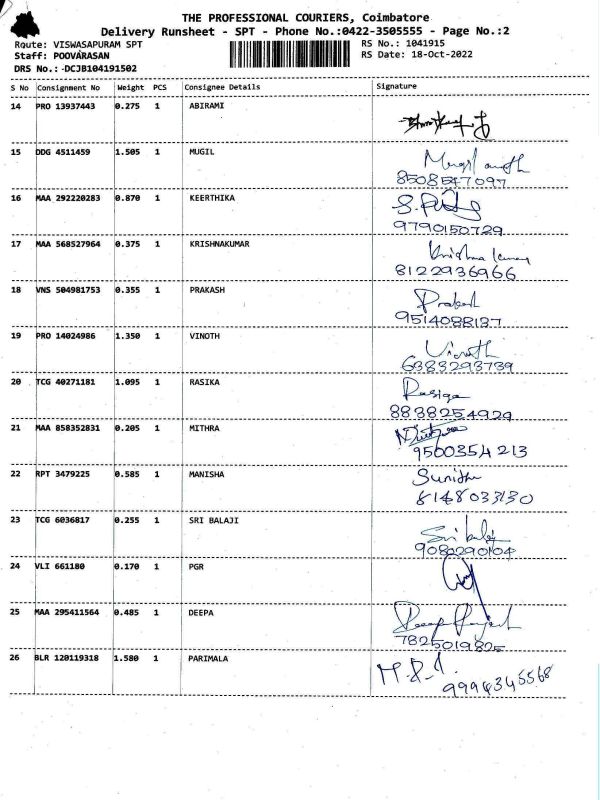 THE PROFESSIONAL COURIERS, Coimbatore
Delivery Runsheet - SPT - Phone No.:0422-3505555 - Page No.:2
Route: VISWASAPURAM SPT
Staff: POOVARASAN
DRS No.: DCJB104191502
RS No.: 1041915
RS Date: 18-Oct-2022
S No Consignment No Weight PCS Consignee Details Signature
14 PRO 13937443 0.275 1 ABIRAMI
15 DDG 4511459 1.505 1 MUGIL
8508547097
16 MAA 292220283 0.870 1 KEERTHIKA
9790150729
17 MAA 568527964 0.375 1 KRISHNAKUMAR Krishna kumar
8122936966
18 VNS 504981753 0.355 1 PRAKASH Prakash
9514088137
19 PRO 14024986 1.350 1 VINOTH Vinoth
6383293739
20 TCG 40271181 1.095 1 RASIKA Rasiga
8838254929
21 MAA 858352831 0.205 1 MITHRA
9500354213
22 RPT 3479225 0.585 1 MANISHA Sunitha
8148033130
23 TCG 6036817 0.255 1 SRI BALAJI Sri balaji
9082290104
24 VLI 661180 0.170 1 PGR
25 MAA 295411564 0.485 1 DEEPA
7825019825
26 BLR 120119318 1.580 1 PARIMALA
9994345568